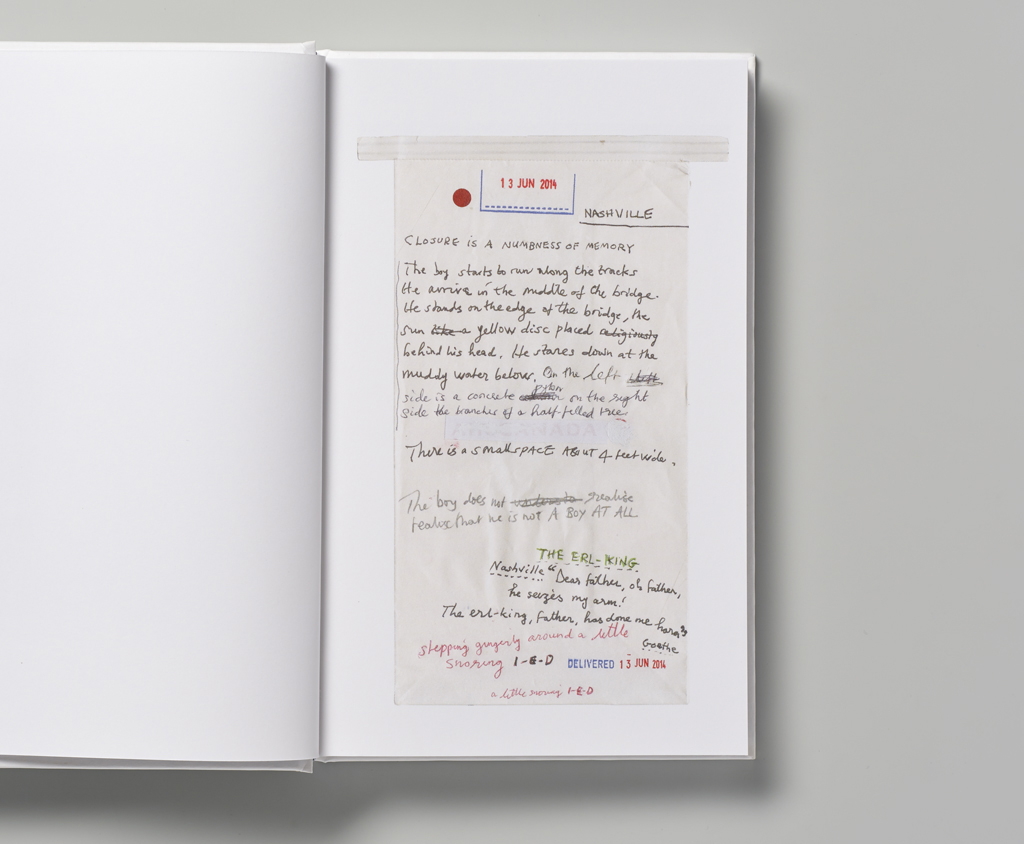 13 JUN 2014
NASHVILLE
CLOSURE iS A NUMBNESS OF MEMORY
The boy starts to run along the tracks
He arrives in the middle of the bridge.
He stands on the edge of the bridge, the
sun like a yellow disc placed religiously
behind his head. He stares down at the
muddy water below. On the left
side is a concrete pylon on the right
side the branches of a half-felled tree
There is a small SPACE ABOUT 4 feet wide.
The boy does not realise
realise that he is not A BOY AT ALL
THE ERL-KING
Nashville "Dear father, oh father,
he seizes my arm!
The erl-king, father, has done me harm"
Goethe
stepping gingerly around a little
snoring I-E-D
DELIVERED 13 JUN 2014
a little snoring I-E-D